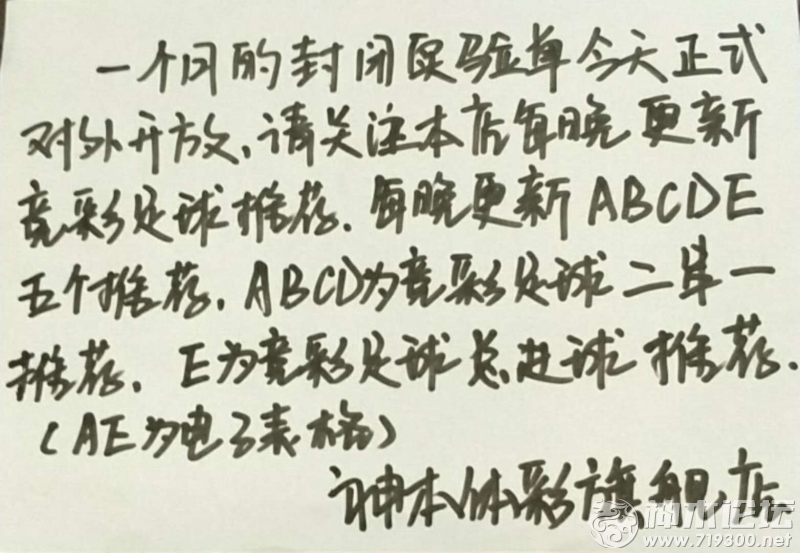 一个月的封闭实验单今天正式
对外开放,请关注本店每晚更新
竞彩足球推荐.每晚更新ABCDE
五个推荐.ABCD为竞彩足球二串一
推荐.E为竞彩足球总进球推荐.
(AE为电子表格)
神本体彩旗舰店.
神木论坛
www.719300.net